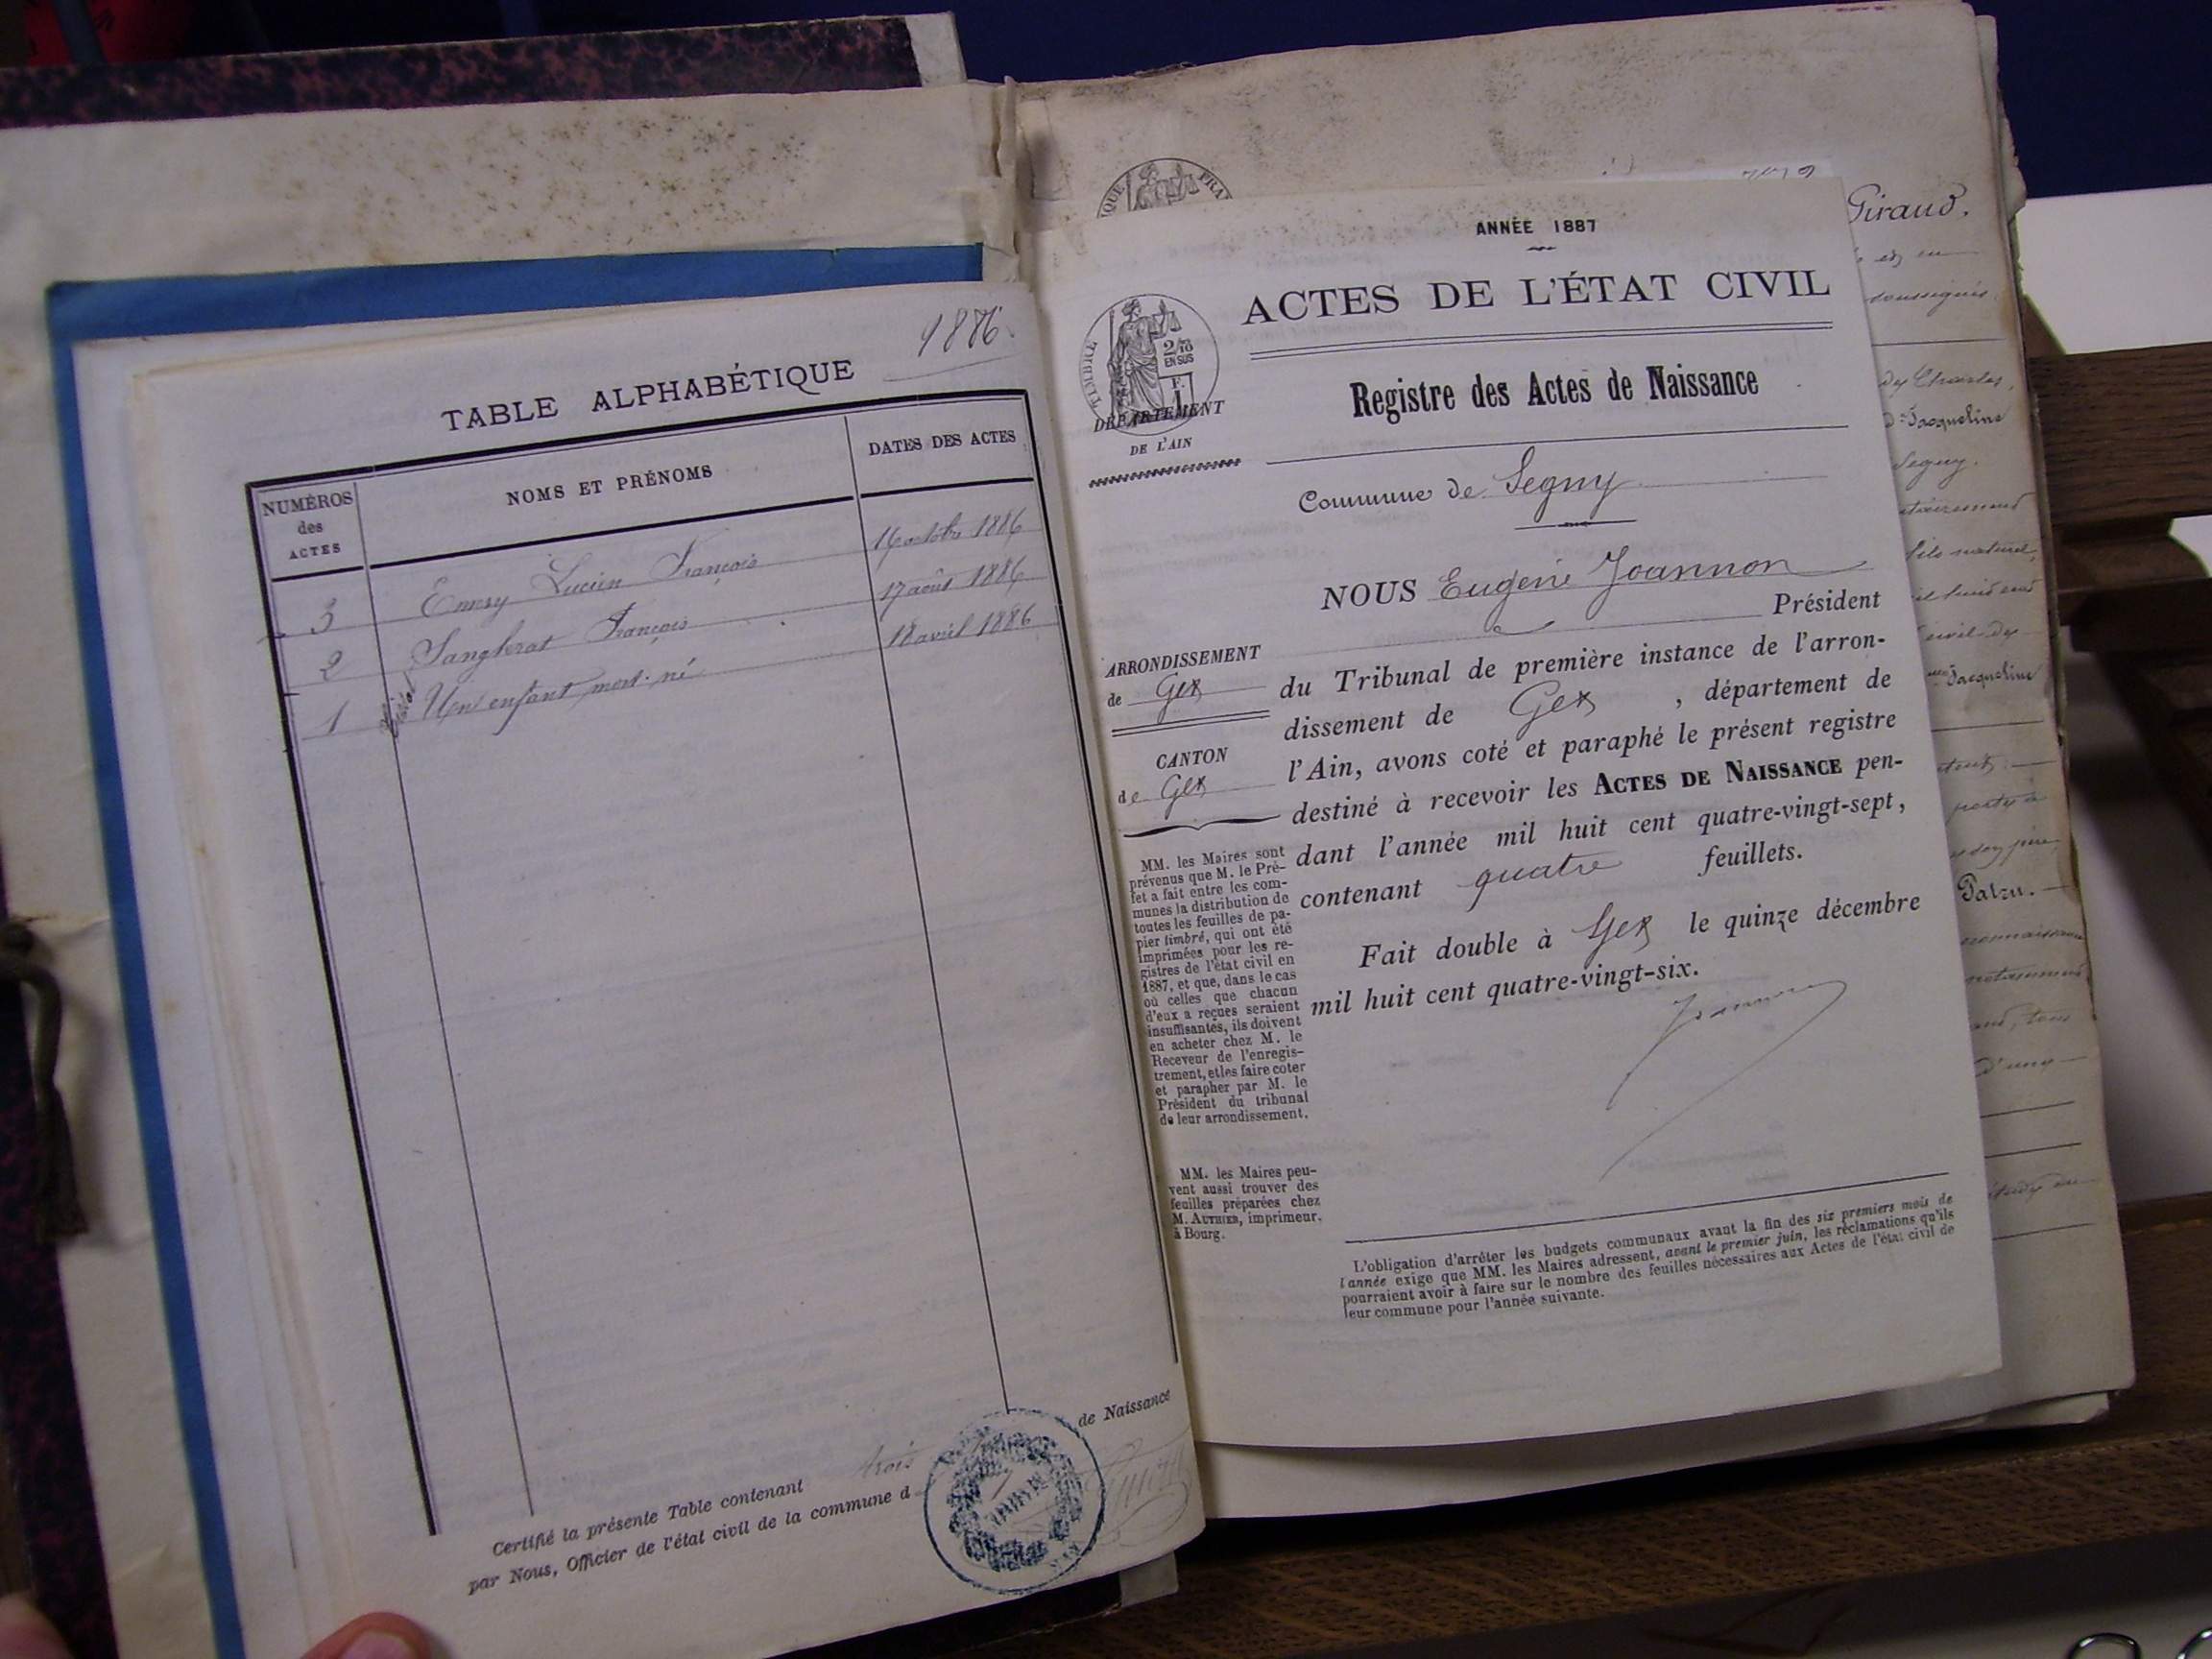 1886.
TABLE ALPHABÉTIQUE
NUMÉROS
des
ACTES
NOMS ET PRÉNOMS
DATES DES ACTES
3 Emery Lucien François 16 octobre 1886
2 François 17 août 1886
1 Un enfant mort-né 18 avril 1886
Certifié la présente Table contenant trois de Naissance
par Nous, Officier de l'état civil de la commune d
ANNÉE 1887
ACTES DE L'ÉTAT CIVIL
TIMBRE
2/10
EN SUS
F.
DÉPARTEMENT
DE L'AIN
Registre des Actes de Naissance
Commune de Segny
NOUS Eugène Joannon
Président
ARRONDISSEMENT
de Gex
CANTON
de Gex
du Tribunal de première instance de l'arron-
dissement de Gex, département de
l'Ain, avons coté et paraphé le présent registre
destiné à recevoir les ACTES DE NAISSANCE pen-
dant l'année mil huit cent quatre-vingt-sept,
contenant quatre feuillets.
Fait double à Gex le quinze décembre
mil huit cent quatre-vingt-six.
Joannon
MM. les Maires sont
prévenus que M. le Pré-
fet a fait entre les com-
munes la distribution de
toutes les feuilles de pa-
pier timbré, qui ont été
imprimées pour les re-
gistres de l'état civil en
1887, et que, dans le cas
où celles que chacun
d'eux a reçues seraient
insuffisantes, ils doivent
en acheter chez M. le
Receveur de l'enregis-
trement, et les faire coter
et parapher par M. le
Président du tribunal
de leur arrondissement.
MM. les Maires peu-
vent aussi trouver des
feuilles préparées chez
M. AUTHIER, imprimeur,
à Bourg.
L'obligation d'arrêter les budgets communaux avant la fin des six premiers mois de
l'année exige que MM. les Maires adressent, avant le premier juin, les réclamations qu'ils
pourraient avoir à faire sur le nombre des feuilles nécessaires aux Actes de l'état civil de
leur commune pour l'année suivante.
Giraud.
soussignés
de Charles,
Jacqueline
Segny.
fils naturel,
Jacqueline
Patru.
d'une